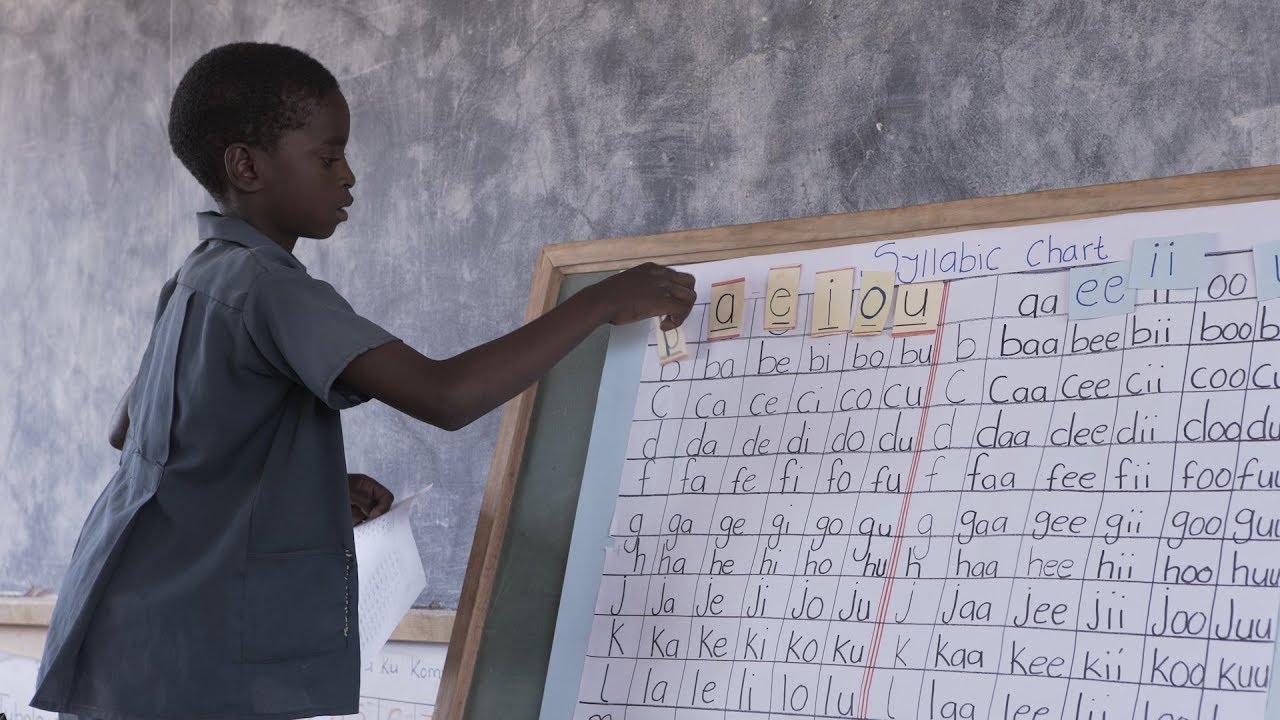 Syllabic Chart
p a e i o u aa ee ii oo
ba be bi bo bu b baa bee bii boo
c ca ce ci co cu c caa cee cii coo
d da de di do du d daa dee dii doo
f fa fe fi fo fu f faa fee fii foo fuu
g ga ge gi go gu g gaa gee gii goo guu
h ha he hi ho hu h haa hee hii hoo huu
j ja je ji jo ju j jaa jee jii joo juu
k ka ke ki ko ku k kaa kee kii koo kuu
l la le li lo lu l laa lee lii loo
ku kom